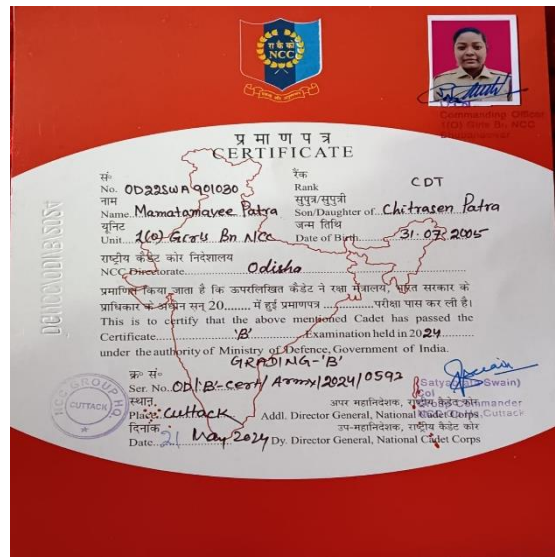 रा कै को
NCC
Commanding Officer
1(O) Girls Bn NCC
प्रमाणपत्र
CERTIFICATE
सं॰ रैंक
No. OD22SWA901030 Rank CDT
नाम सुपुत्र/सुपुत्री
Name Mamatamayee Patra Son/Daughter of Chitrasen Patra
यूनिट जन्म तिथि
Unit 1(O) Girls Bn NCC Date of Birth 31.07.2005
राष्ट्रीय कैडेट कोर निदेशालय
NCC Directorate Odisha
प्रमाणित किया जाता है कि ऊपरलिखित कैडेट ने रक्षा मंत्रालय, भारत सरकार के
प्राधिकार के अधीन सन् 20...... में हुई प्रमाणपत्र ............परीक्षा पास कर ली है।
This is to certify that the above mentioned Cadet has passed the
Certificate 'B' Examination held in 2024
under the authority of Ministry of Defence, Government of India.
GRADING-'B'
क्र॰ सं॰
Ser. No. OD/'B'-Cert/Army/2024/0592
(Satyabrat Swain)
Col
Group Commander
NCC Group, Cuttack
स्थान अपर महानिदेशक, राष्ट्रीय कैडेट कोर
Place Cuttack Addl. Director General, National Cadet Corps
दिनांक उप-महानिदेशक, राष्ट्रीय कैडेट कोर
Date 21 May 2024 Dy. Director General, National Cadet Corps
NCC GROUP HQ.
CUTTACK